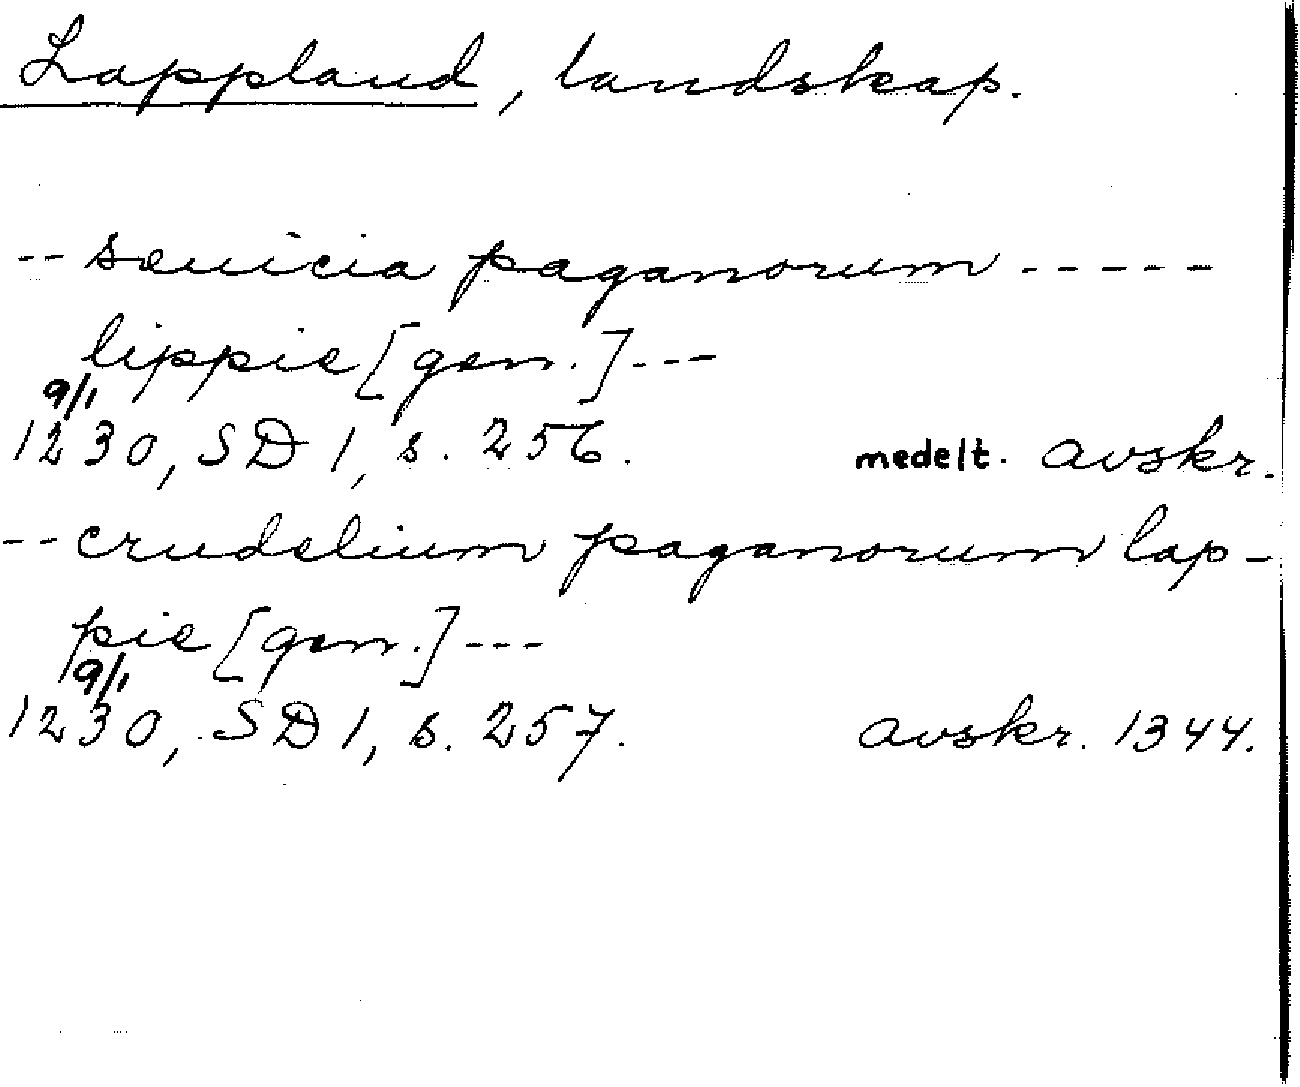 Lappland, landskap.
-- seuicia paganorum -----
lippie [gen.] ---
9/1
1230, SD 1, s. 256. medelt. avskr.
-- crudelium paganorum lap-
pie [gen.] ---
9/1
1230, SD 1, s. 257. avskr. 1344.